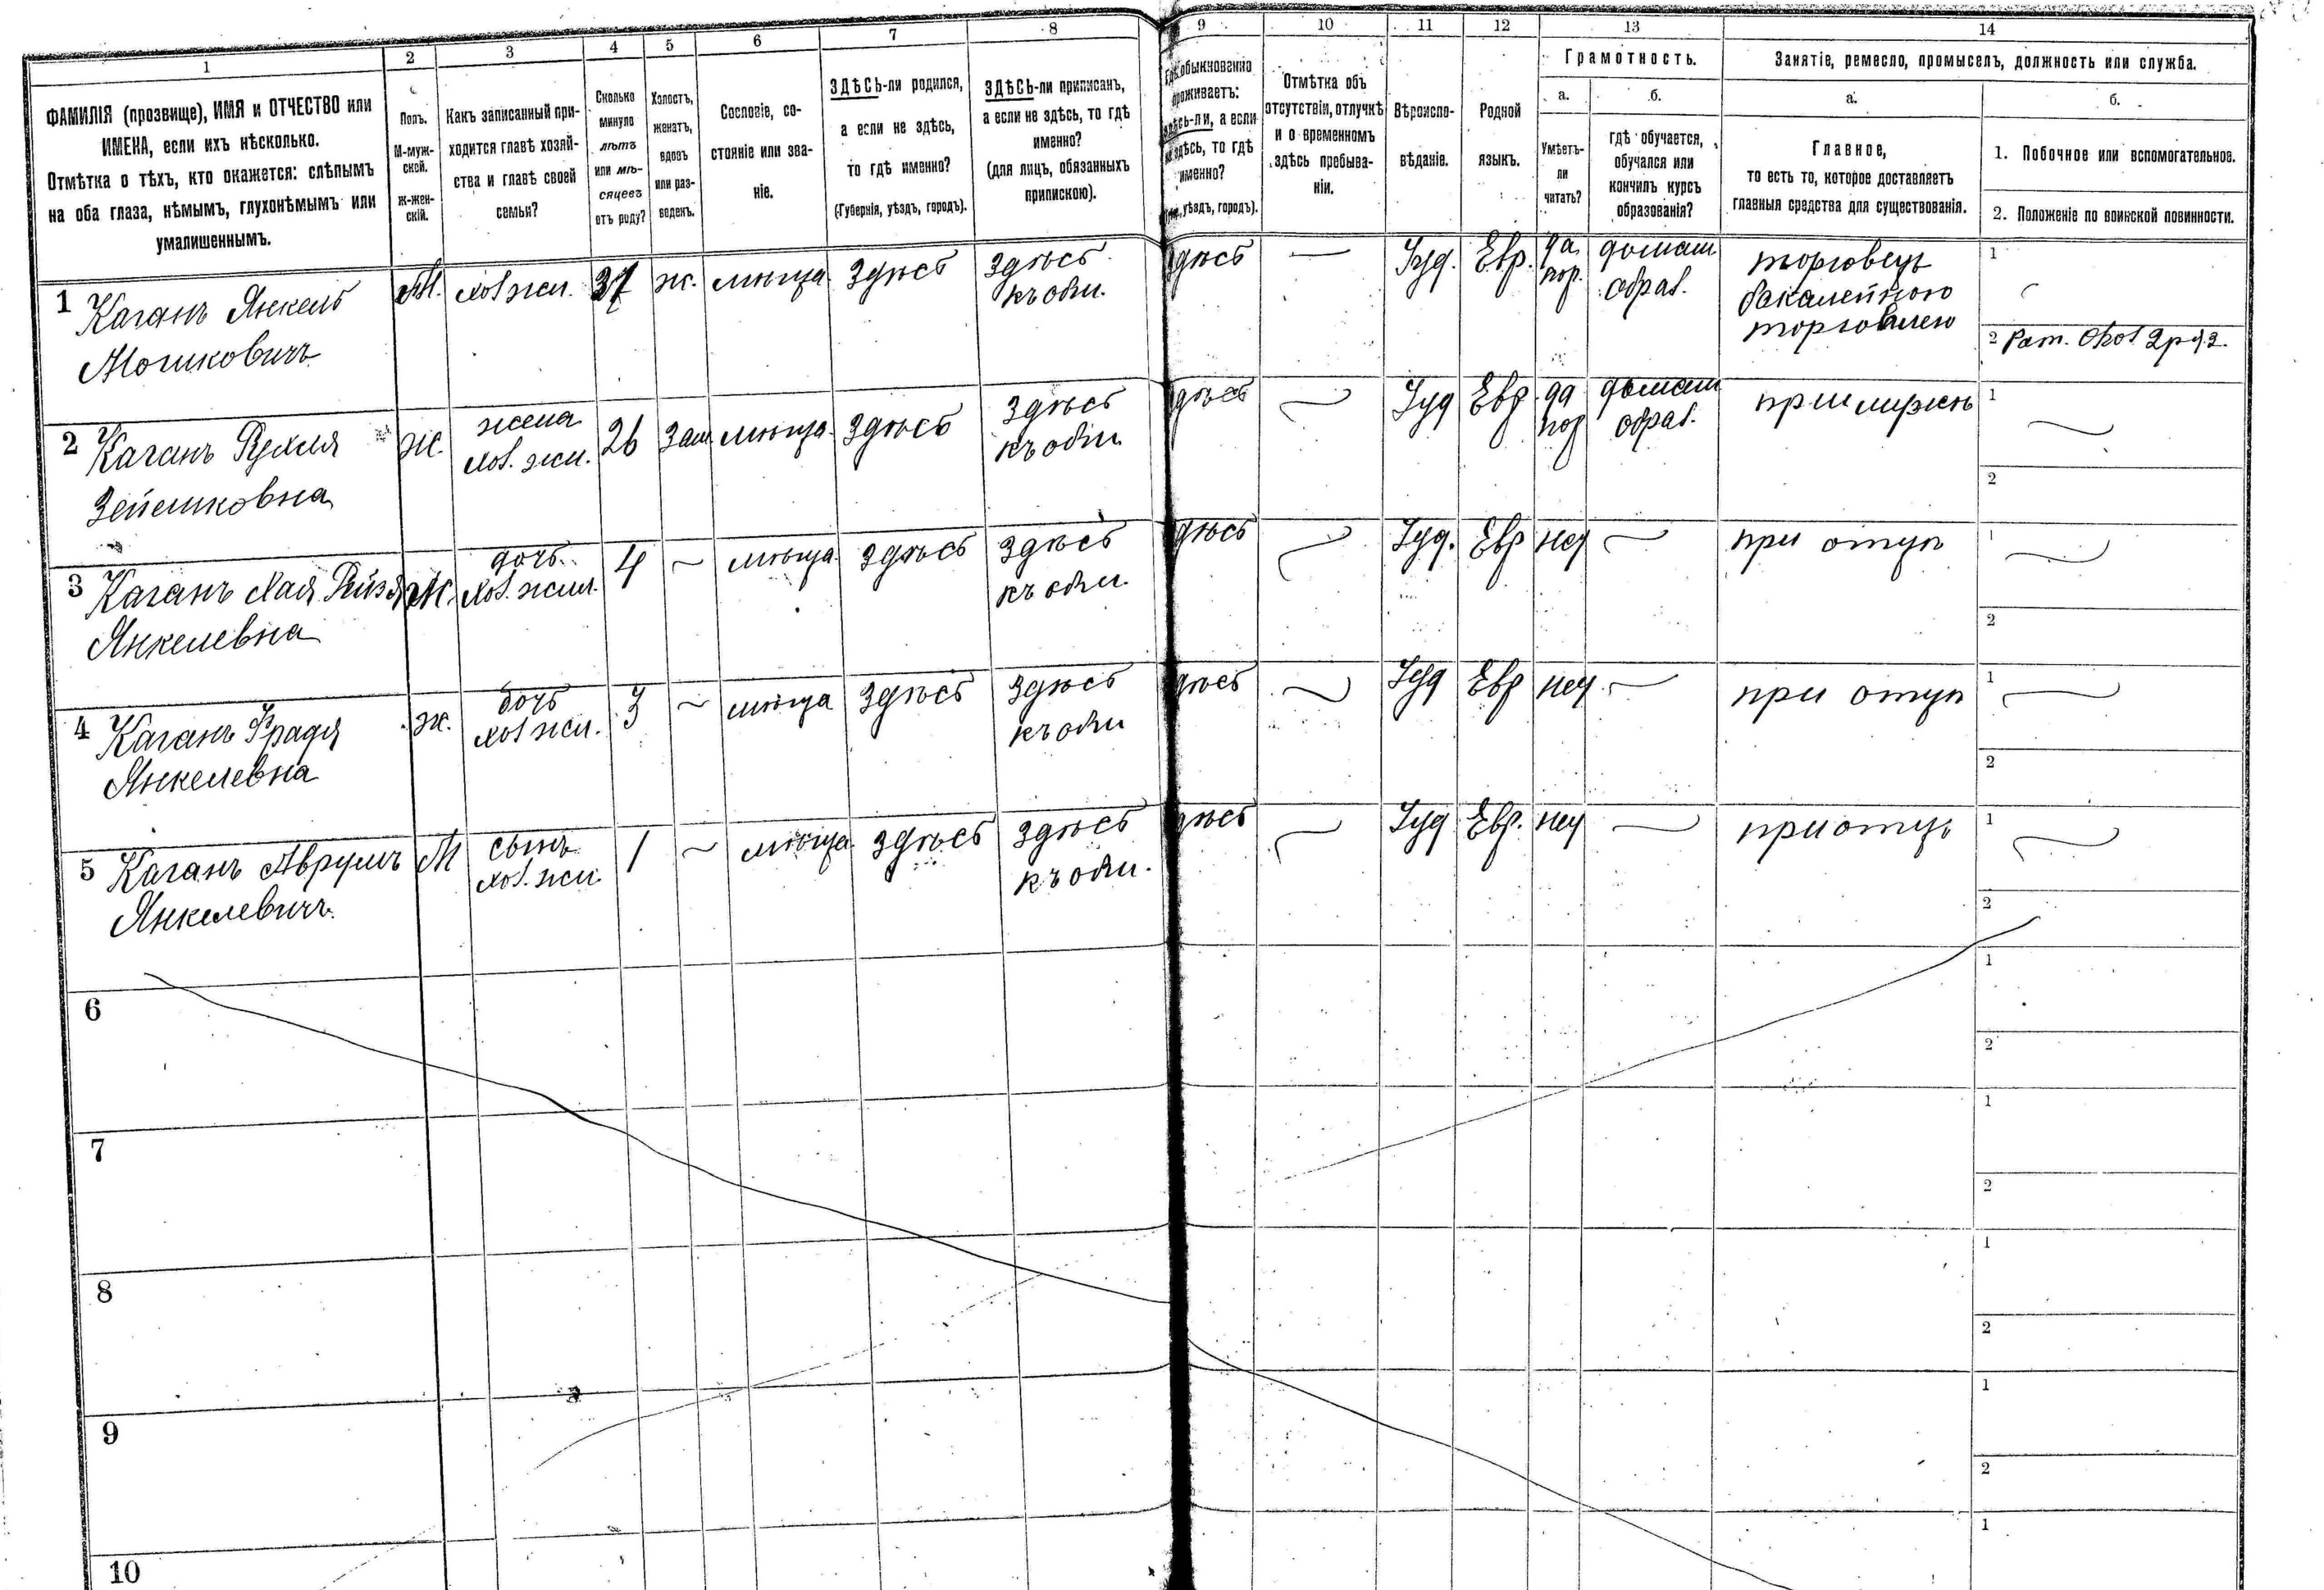 1 2 3 4 5 6 7 8 9 10 11 12 13 14
ФАМИЛІЯ (прозвище), ИМЯ и ОТЧЕСТВО или
ИМЕНА, если ихъ нѣсколько.
Отмѣтка о тѣхъ, кто окажется: слѣпымъ
на оба глаза, нѣмымъ, глухонѣмымъ или
умалишеннымъ.
Полъ.
М-муж-
ской.
Ж-жен-
скій.
Какъ записанный при-
ходится главѣ хозяй-
ства и главѣ своей
семьи?
Сколько
минуло
лѣтъ
или мѣ-
сяцевъ
отъ роду?
Холостъ,
женатъ,
вдовъ
или раз-
веденъ.
Сословіе, со-
стояніе или зва-
ніе.
ЗДѢСЬ-ли родился,
а если не здѣсь,
то гдѣ именно?
(Губернія, уѣздъ, городъ).
ЗДѢСЬ-ли приписанъ,
а если не здѣсь, то гдѣ
именно?
(для лицъ, обязанныхъ
припискою).
обыкновенно
проживаетъ:
здѣсь-ли, а если
не здѣсь, то гдѣ
именно?
уѣздъ, городъ).
Отмѣтка объ
отсутствіи, отлучкѣ
и о временномъ
здѣсь пребыва-
ніи.
Вѣроиспо-
вѣданіе.
Родной
языкъ.
Грамотность.
а.
Умѣетъ-
ли
читать?
б.
гдѣ обучается,
обучался или
кончилъ курсъ
образованія?
Занятіе, ремесло, промыселъ, должность или служба.
а.
Главное,
то есть то, которое доставляетъ
главныя средства для существованія.
б.
1. Побочное или вспомогательное.
2. Положеніе по воинской повинности.
1 Каганъ Янкель
Мошковичъ
М. хоз жил. 37 ж. мѣща. здѣсь
здѣсь
къ общ.
здѣсь — Іуд. Евр.
да
пор.
домаш
образ.
торговецъ
бакалейною
торговлею
1
2 Рат. 2 раз.
2 Каганъ Рухля
Ж.
жена
хоз. жил.
26 зам мѣща. здѣсь
здѣсь
къ общ.
здѣсь Іуд Евр.
да
пор
домаш
образ.
при мужѣ
1
2
3 Каганъ Хая Рейзя
Янкелевна
Ж.
дочь
хоз. жил.
4 ~ мѣща здѣсь
здѣсь
къ общ.
здѣсь Іуд. Евр нет —
при отцѣ
1
2
4 Каганъ Фрадя
Янкелевна
ж.
дочь
хоз жил.
3 ~ мѣща здѣсь
здѣсь
къ общ
здѣсь Іуд Евр нет —
при отцѣ
1
2
5 Каганъ Аврумъ
Янкелевичъ
М
сынъ
хоз. жил
1 ~ мѣща. здѣсь
здѣсь
къ общ.
здѣсь Іуд Евр. нет —
при отцѣ
1
2
6
1
2
7
1
2
8
1
2
9
1
2
10
1